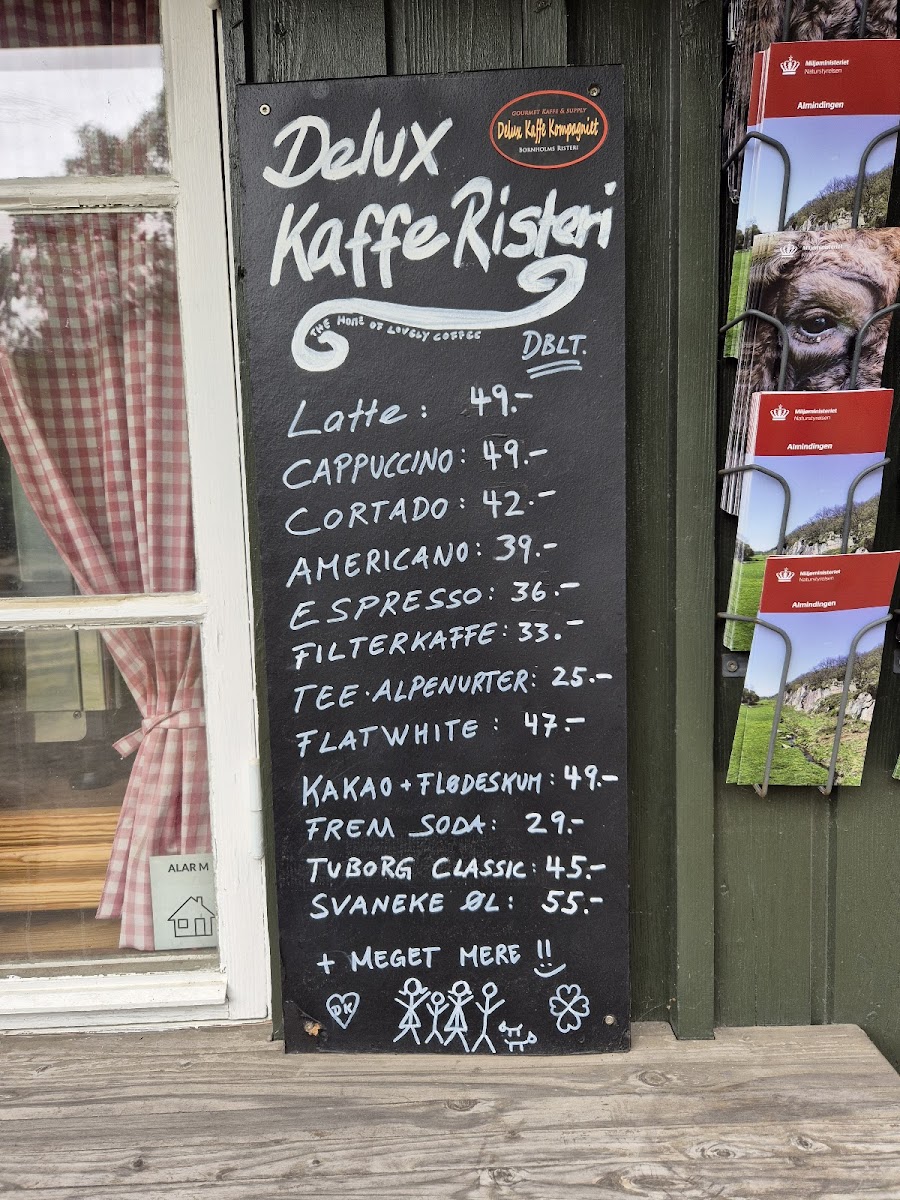 Delux
Kaffe Risteri
GOURMET KAFFE & SUPPLY
Delux Kaffe Kompagniet
BORNHOLMS RISTERI
THE HOME OF LOVELY COFFEE
DBLT.
Latte: 49.-
CAPPUCCINO: 49.-
CORTADO: 42.-
AMERICANO: 39.-
ESPRESSO: 36.-
FILTERKAFFE: 33.-
TEE·ALPENURTER: 25.-
FLATWHITE: 47.-
KAKAO + FLØDESKUM: 49.-
FREM SODA: 29.-
TUBORG CLASSIC: 45.-
SVANEKE ØL: 55.-
+ MEGET MERE !!
DK
ALARM
Miljøministeriet
Naturstyrelsen
Almindingen
Miljøministeriet
Miljøministeriet
Naturstyrelsen
Almindingen
Miljøministeriet
Naturstyrelsen
Almindingen